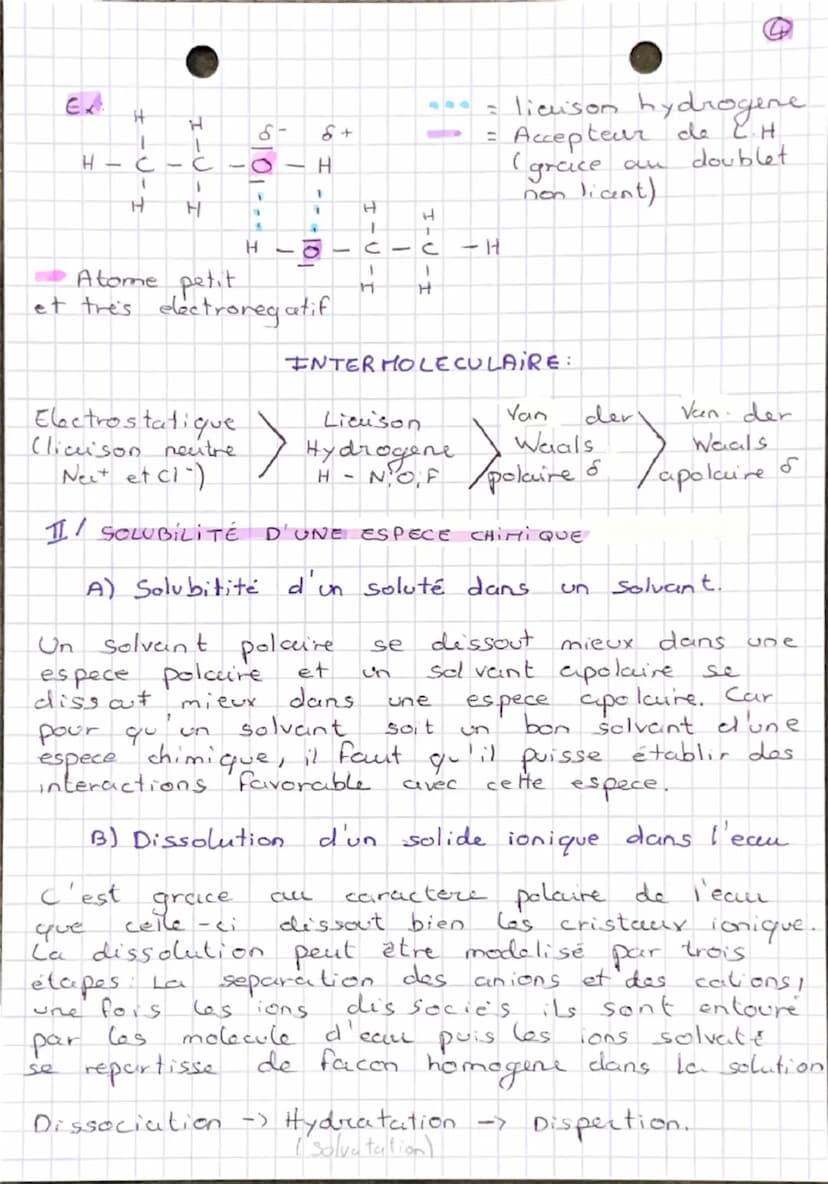 4
Ex
H H
δ- δ+
H - C - C - O - H
H H
H H
H - O - C - C - H
H H
= liaison hydrogene
= Accepteur de L.H
(grace au doublet
non liant)
Atome petit
et très electronegatif
INTERMOLECULAIRE:
Electrostatique > Liaison > Van der > Van der
(liaison neutre Hydrogene Waals Waals
Na+ et Cl-) H - N,O,F polaire δ apolaire δ
II/ SOLUBILITÉ D'UNE ESPECE CHIMIQUE
A) Solubitité d'un soluté dans un solvant.
Un solvant polaire se dissout mieux dans une
espece polaire et un solvant apolaire se
dissout mieux dans une espece apolaire. Car
pour qu'un solvant soit un bon solvant d'une
espece chimique, il faut qu'il puisse établir des
interactions favorable avec cette espece.
B) Dissolution d'un solide ionique dans l'eau
C'est grace au caractere polaire de l'eau
que celle-ci dissout bien les cristaux ionique.
La dissolution peut être modelisé par trois
étapes: La separation des anions et des cations,
une fois les ions dissociés ils sont entouré
par les molecule d'eau puis les ions solvaté
se repartisse de facon homogene dans la solution
Dissociation -> Hydratation -> Dispertion.
(solvatation)